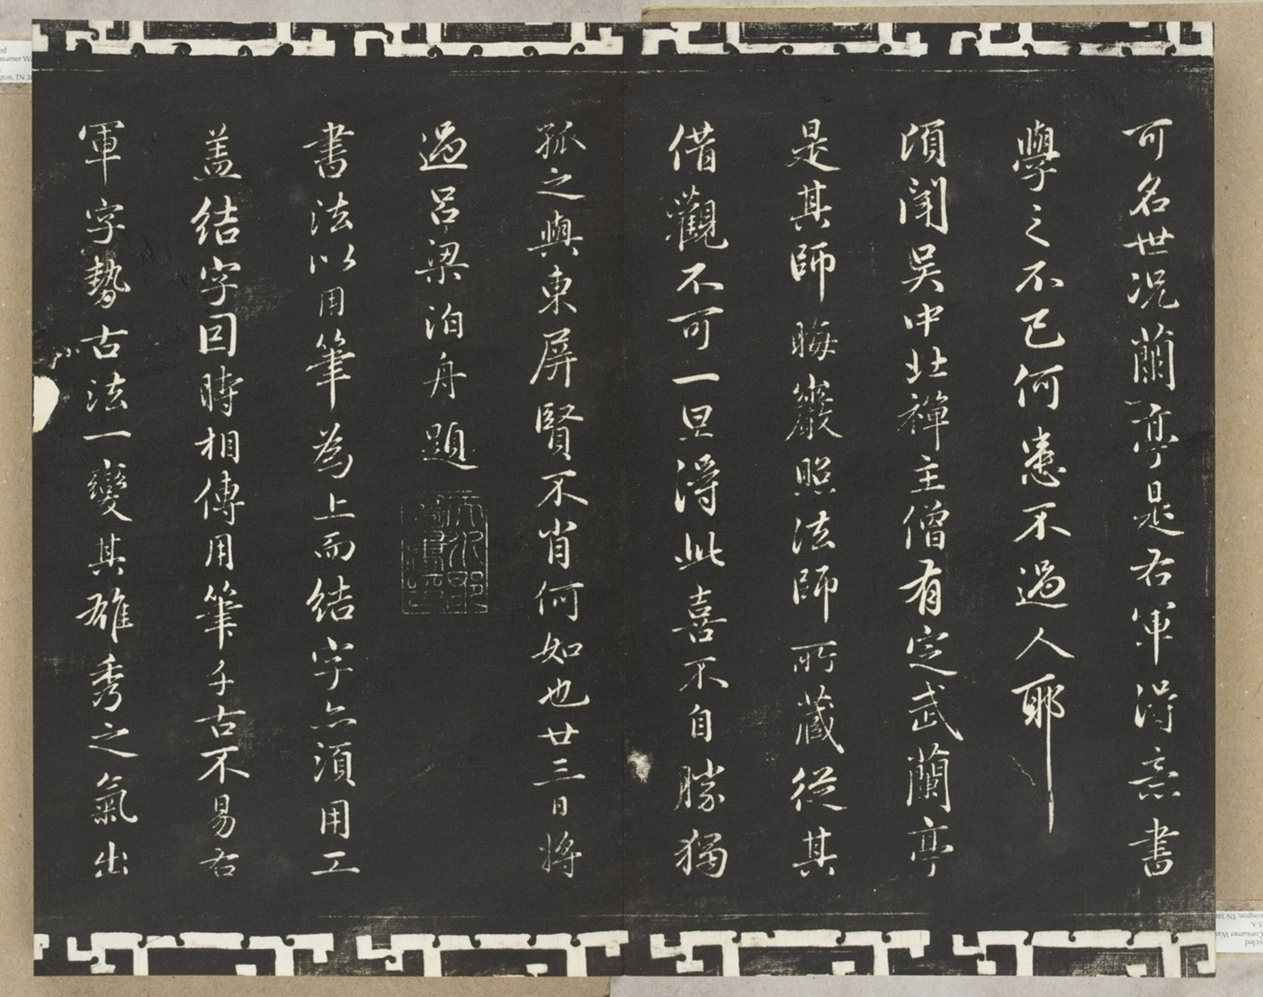 可名世况蘭亭是右軍得意書
學之不已何患不過人耶
頃聞吴中北禪主僧有定武蘭亭
是其師晦巖照法師所藏從其
借觀不可一旦得此喜不自勝獨
孤之與東屏賢不肖何如也廿三日將
過吕梁泊舟題
書法以用筆為上而結字亦須用工
盖結字因時相傳用筆千古不易右
軍字勢古法一變其雄秀之氣出